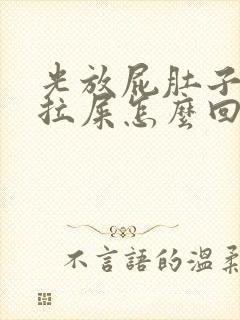 光放屁肚子
拉屎怎麼回
不言語的溫柔